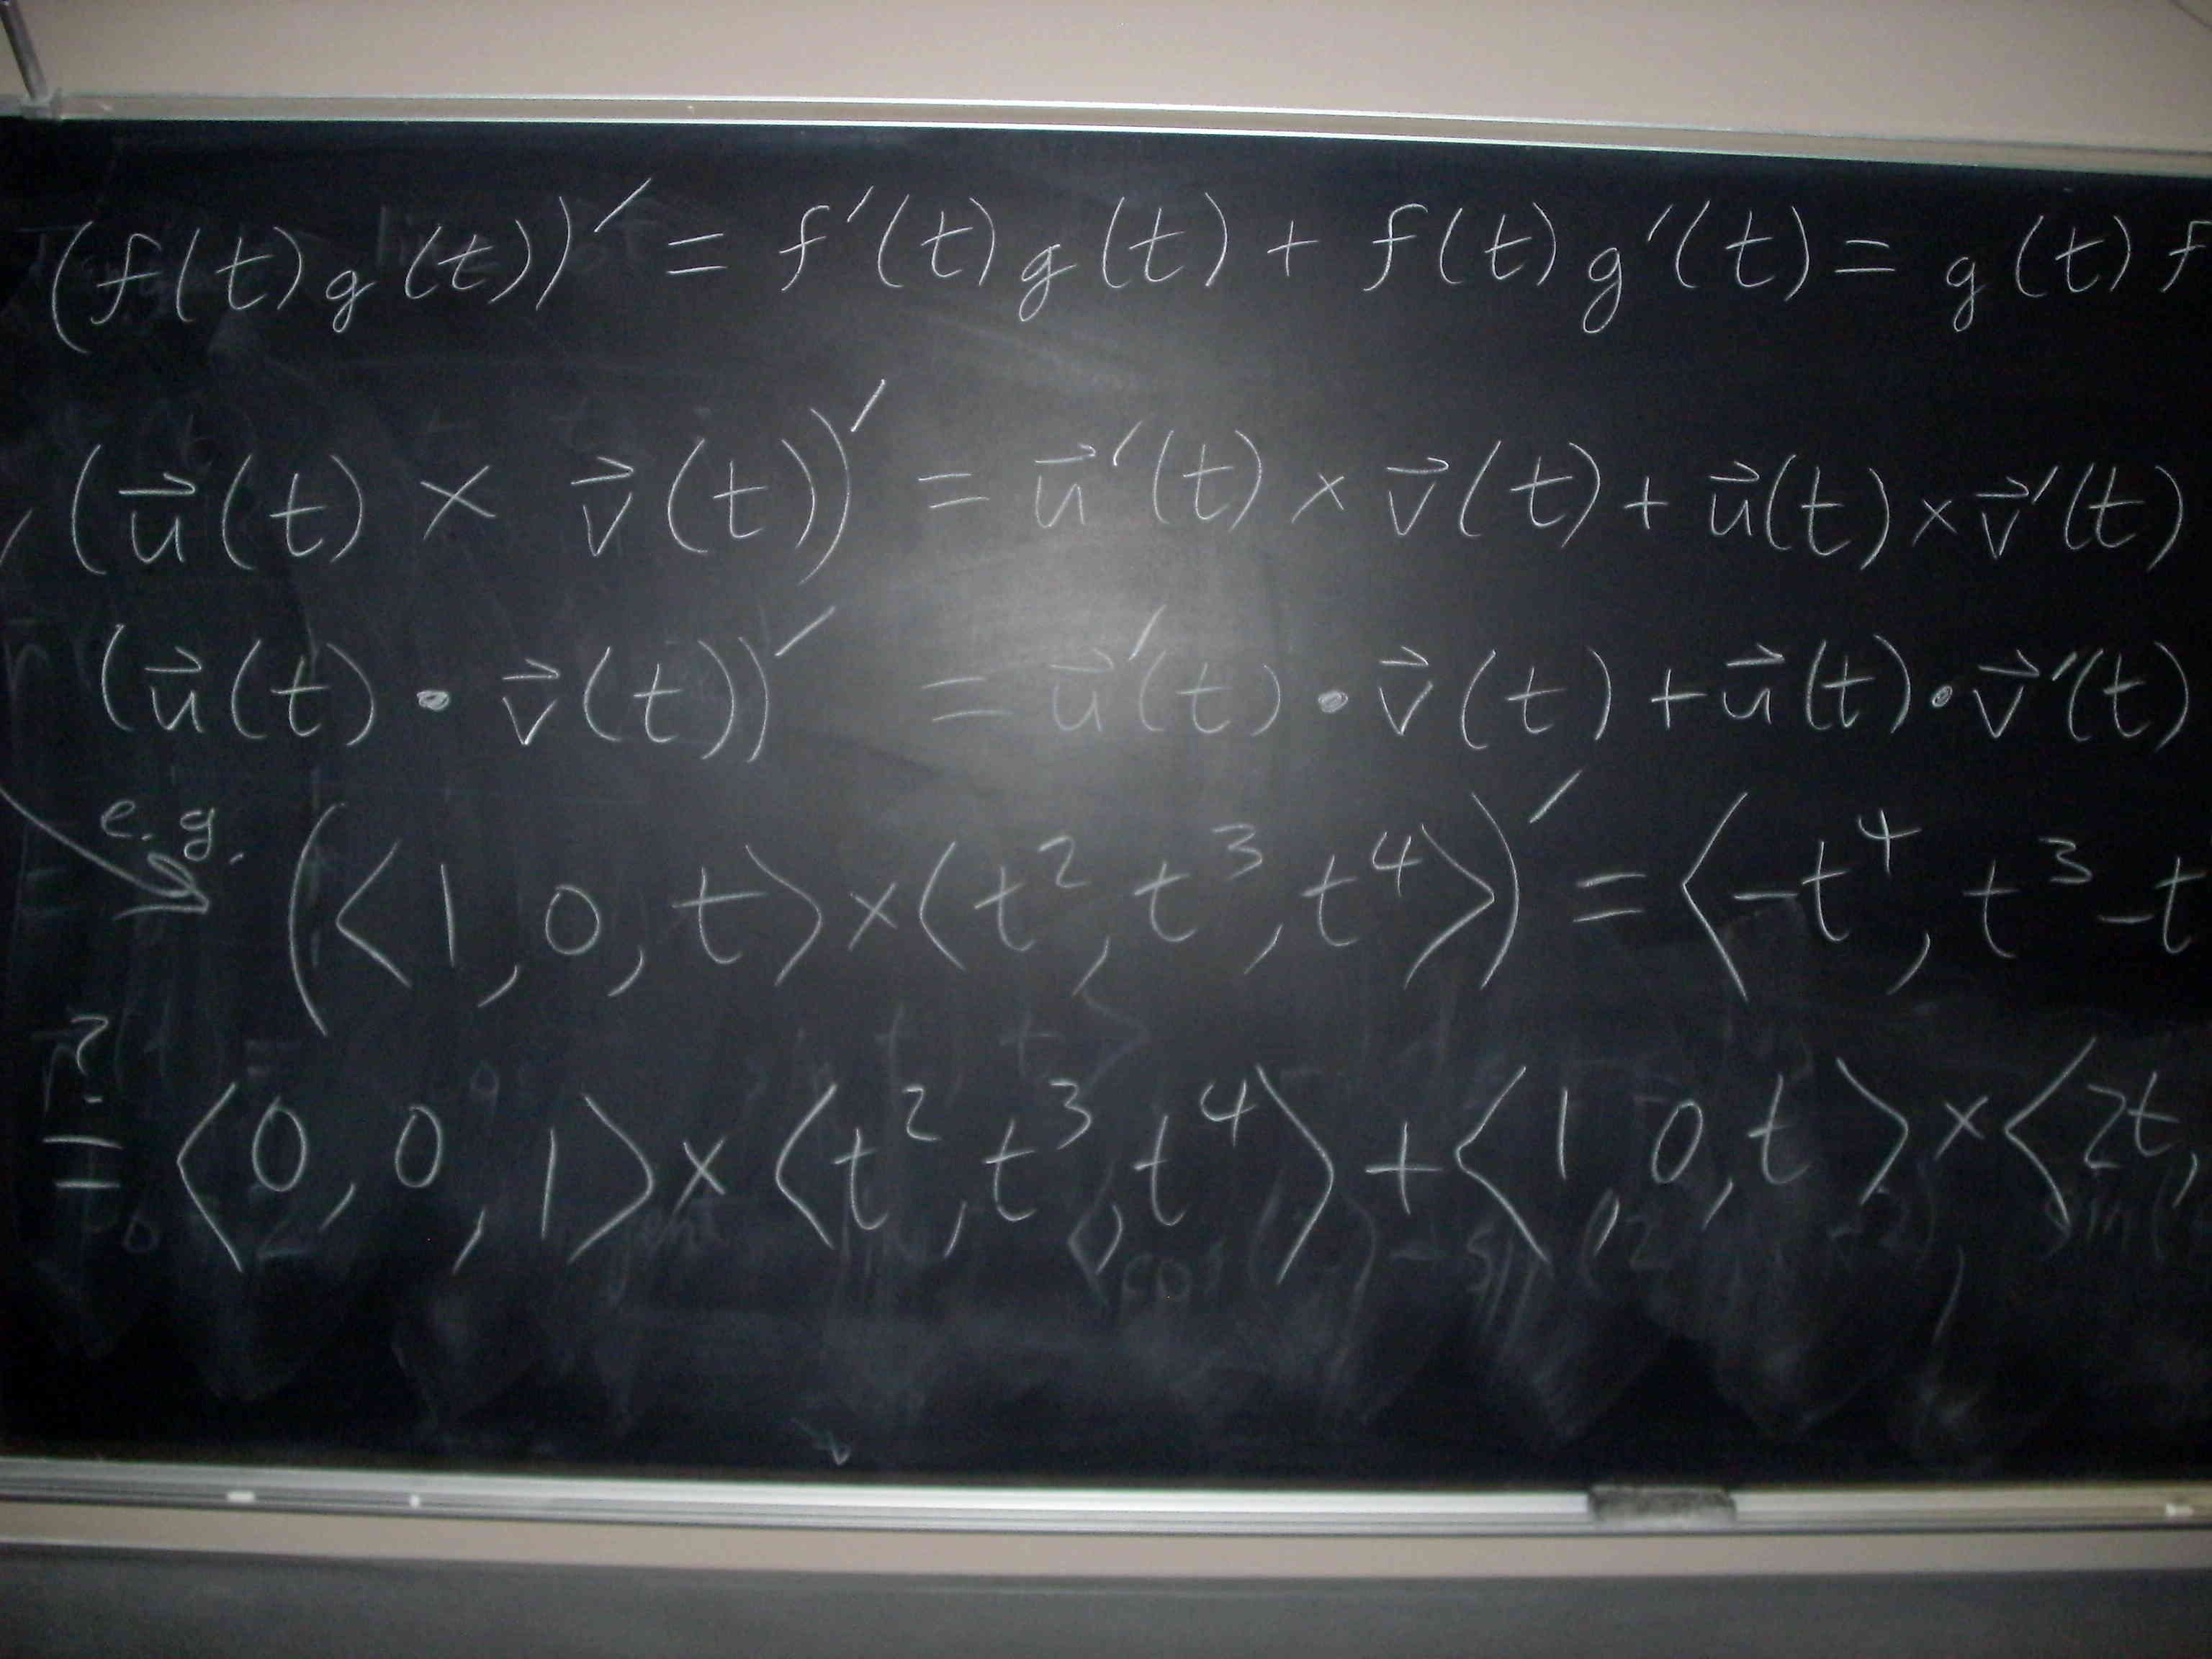 (f(t)g(t))′ = f′(t)g(t) + f(t)g′(t) = g(t)f
(u⃗(t) × v⃗(t))′ = u⃗′(t) × v⃗(t) + u⃗(t) × v⃗′(t)
(u⃗(t) • v⃗(t))′ = u⃗′(t) • v⃗(t) + u⃗(t) • v⃗′(t)
e.g. (⟨1, 0, t⟩ × ⟨t², t³, t⁴⟩)′ = ⟨-t⁴, t³ - t
≟ ⟨0, 0, 1⟩ × ⟨t², t³, t⁴⟩ + ⟨1, 0, t⟩ × ⟨2t,